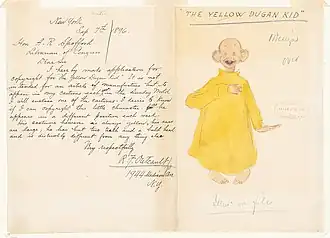 New York
Sep 7th/1896.
Hon A. R. Spofford
Librarian of Congress
Dear Sir
I hereby make application for
copyright for the Yellow Dugan Kid" It is not
intended for an article of manufacture but to
appear in my cartoons each week in the Sunday World.
I will enclose one of the cartoons
if I can copyright the little character for he
appears in a different position each week.
His costume however is always yellow, his ears
are large, he has but two teeth and a bald head
and is distinctly different from anything else
Very respectfully
R. F. Outcault
N.Y.
"THE YELLOW DUGAN KID"